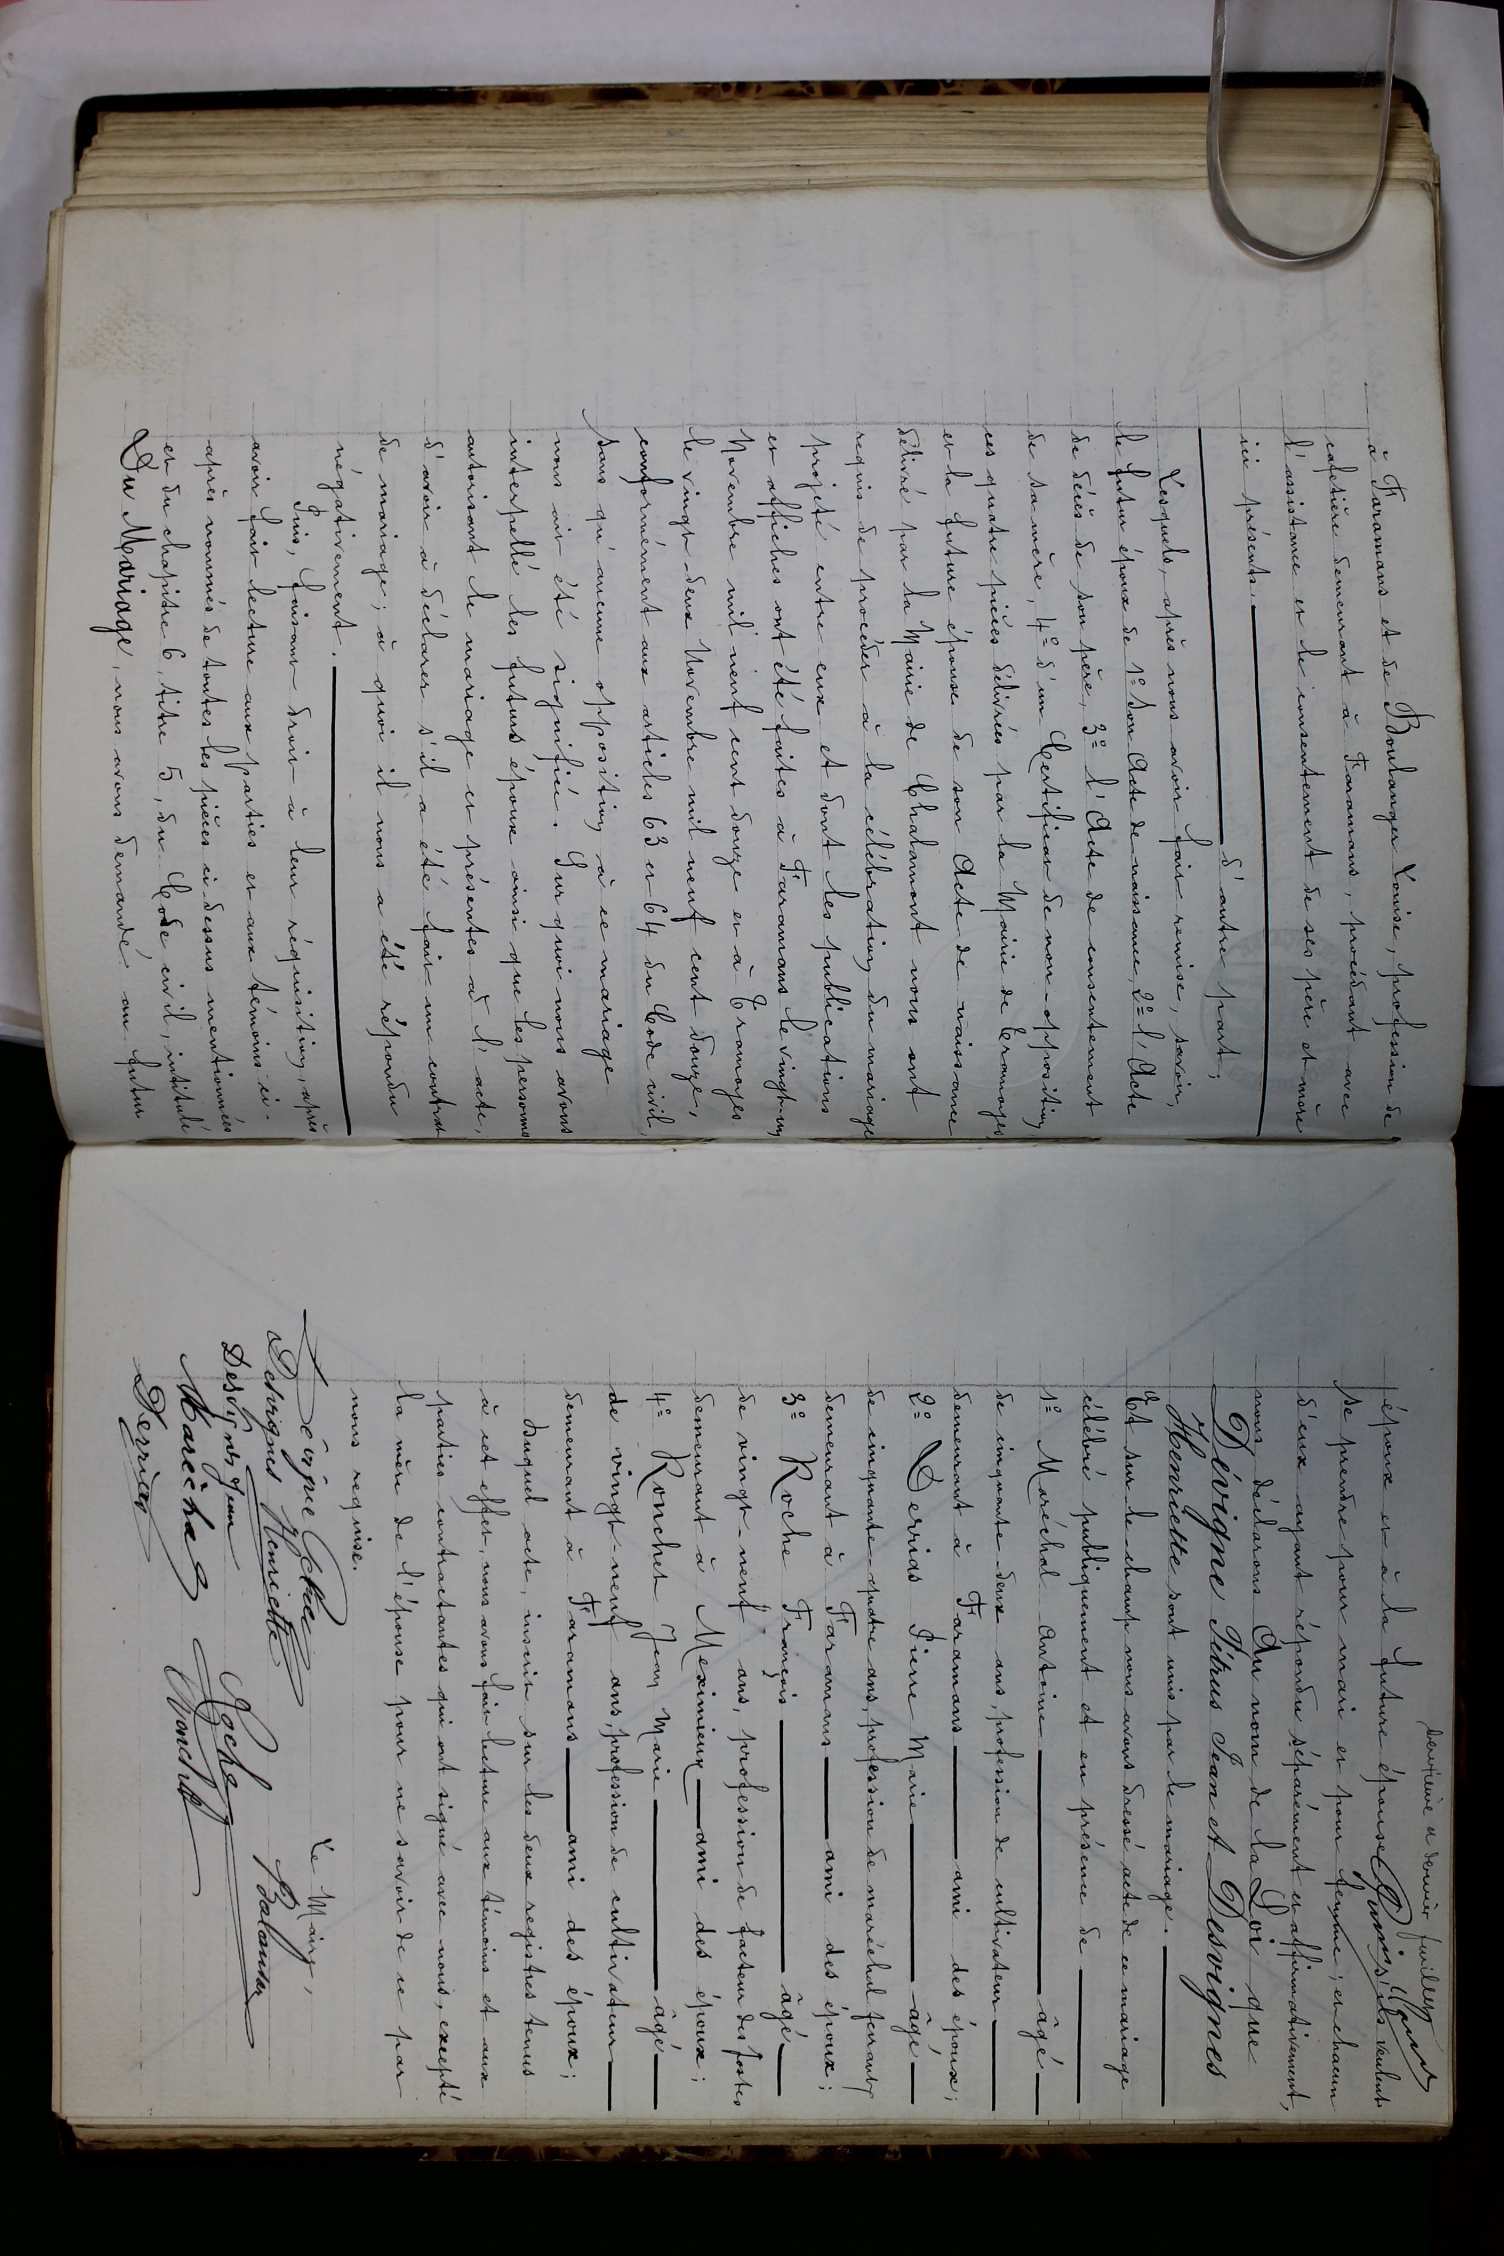 à Faramans et de Boulanger Louise, profession de
cafetière demeurant à Faramans, procédant avec
l'assistance et le consentement de ses père et mère
ici présents.
d'autre part;
Lesquels, après nous avoir fait remise, savoir,
le futur époux de 1º Son Acte de naissance, 2º l'Acte
de décès de son père, 3º l'Acte de consentement
de sa mère, 4º d'un Certificat de non-opposition
ces quatre pièces délivrées par la Mairie de Tramoyes
et la future épouse de son Acte de naissance
délivré par la Mairie de Chalamont nous ont
requis de procéder à la célébration du mariage
projeté entre eux et dont les publications
et affiches ont été faites à Faramans le vingt-un
Novembre mil neuf cent douze et à Tramoyes
le vingt-deux Novembre mil neuf cent douze,
conformément aux articles 63 et 64 du Code civil,
sans qu'aucune opposition à ce mariage
nous ait été signifiée. Sur quoi nous avons
interpellé les futurs époux ainsi que les personnes
autorisant le mariage et présentes à l'acte,
d'avoir à déclarer s'il a été fait un contrat
de mariage; à quoi il nous a été répondu
négativement.
Puis, faisant droit à leur réquisition, après
avoir fait lecture aux parties et aux témoins ci-
après nommés de toutes les pièces ci-dessus mentionnées
et du chapitre 6, titre 5, du Code civil, intitulé
Du Mariage, nous avons demandé au futur
deuxième et dernier feuillet
époux et à la future épouse s'ils veulent
se prendre pour mari et pour femme; et chacun
d'eux ayant répondu séparément et affirmativement,
nous déclarons Au nom de la Loi que
Dévigne Pétrus Jean et Desvignes
Henriette sont unis par le mariage.
Et sur le champ nous avons dressé acte de ce mariage
célébré publiquement et en présence de
1º Maréchal Antoine âgé
de cinquante deux ans, profession de cultivateur
demeurant à Faramans ami des époux;
2º Derrias Pierre Marie âgé
de cinquante-quatre ans, profession de maréchal ferrant
demeurant à Faramans ami des époux;
3º Roche François âgé
de vingt-neuf ans, profession de facteur des postes
demeurant à Meximieux ami des époux;
4º Ronchet Jean Marie âgé
de vingt-neuf ans, profession de cultivateur
demeurant à Faramans ami des époux;
Duquel acte, inscrit sur les deux registres tenus
à cet effet, nous avons fait lecture aux témoins et aux
parties contractantes qui ont signé avec nous, excepté
la mère de l'épouse pour ne savoir de ce par
nous requise.
Le Maire,
Dévigne
Desvignes Henriette
Desvignes Jean
Roche
Maréchal
Ronchet
Derrias